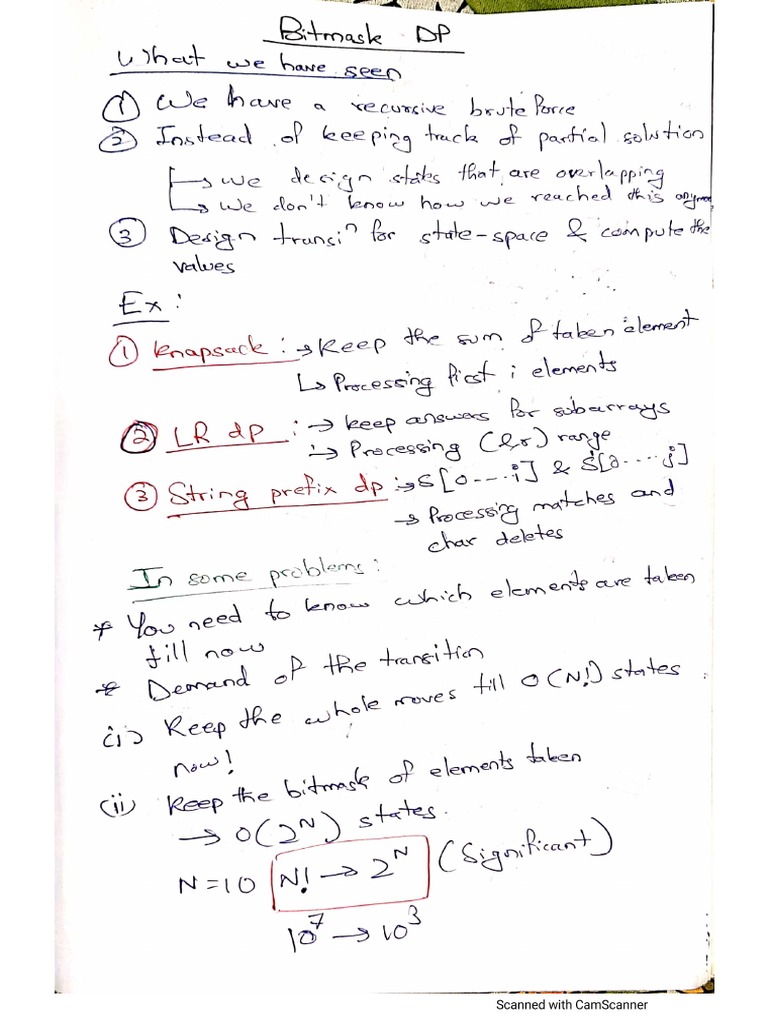 Bitmask DP
What we have seen
① We have a recursive brute force
② Instead of keeping track of partial solution
→ we design states that are overlapping
→ we don't know how we reached this anymore
③ Design transiⁿ for state-space & compute the
values
Ex:
① knapsack: → Keep the sum of taken element
↳ Processing first i elements
② LR dp: → keep answers for subarrays
→ Processing (l,r) range
③ String prefix dp: → S[0---i] & S[0----j]
→ Processing matches and
char deletes
In some problems:
* You need to know which elements are taken
till now
* Demand of the transition
(i) Keep the whole moves till O(N!) states
now!
(ii) Keep the bitmask of elements taken
→ O(2^N) states.
N=10 N! → 2^N (Significant)
10^7 → 10^3
Scanned with CamScanner